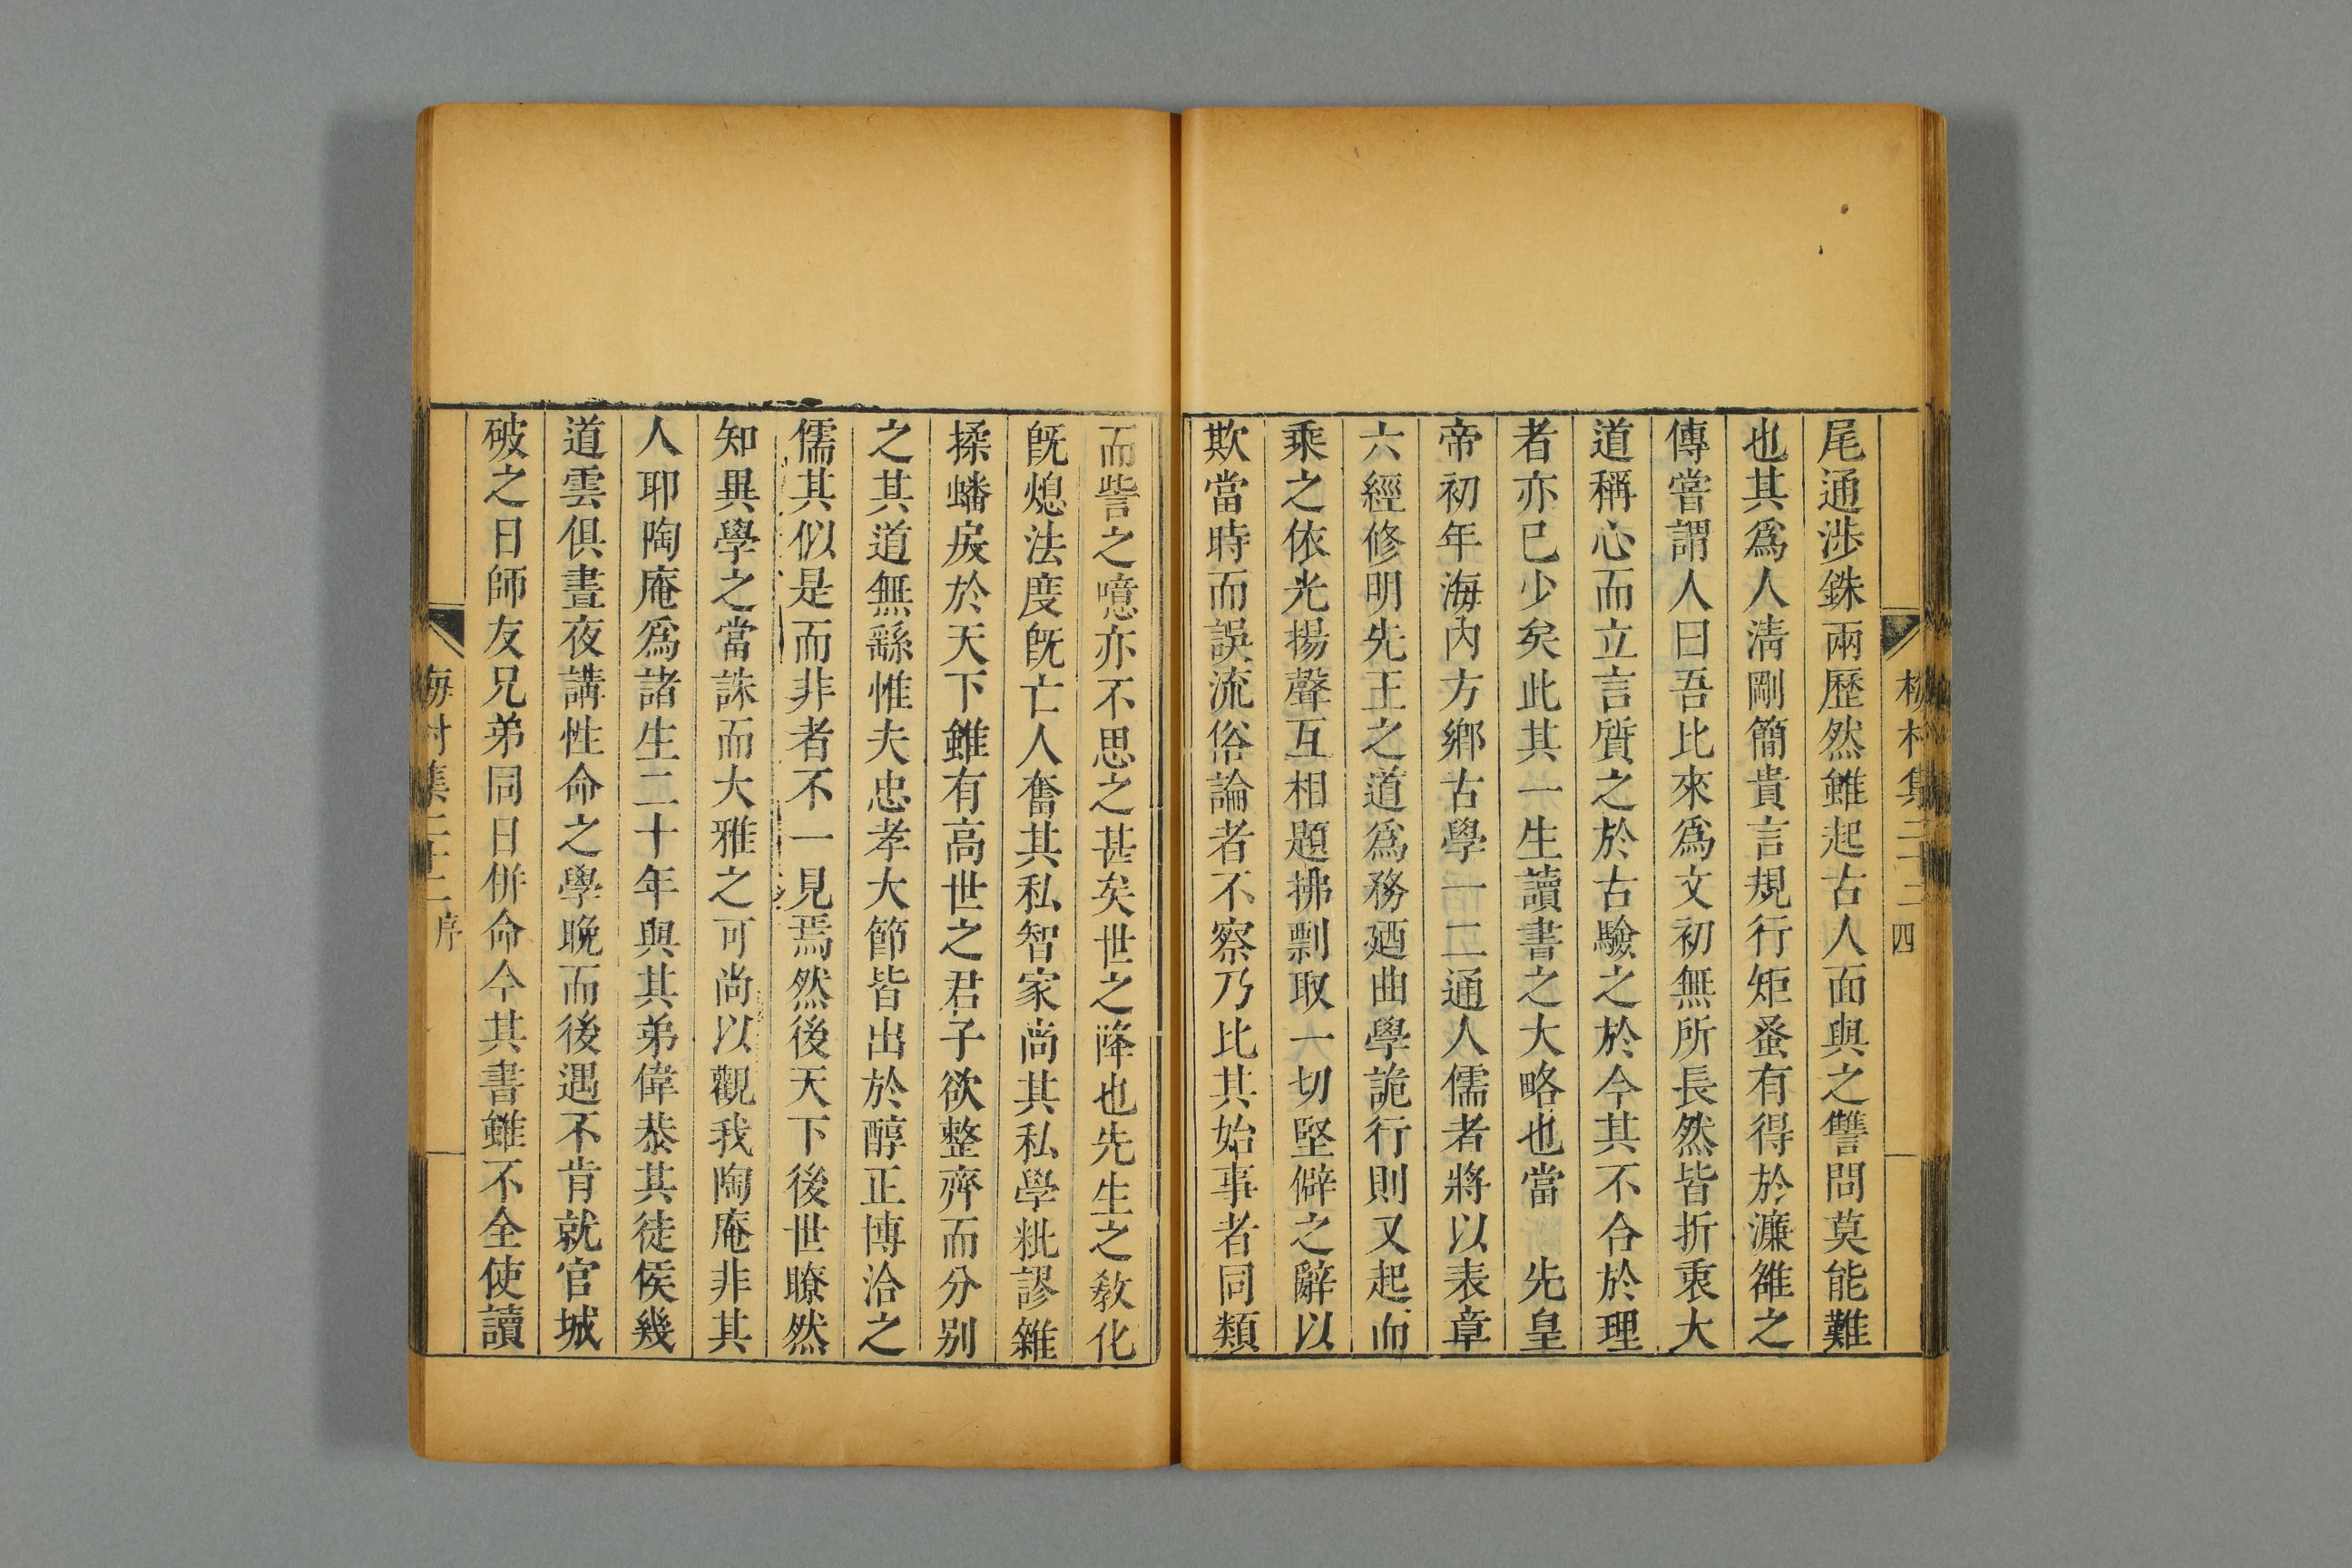 尾通涉銖兩歷然雖起古人面與之讐問莫能難
也其爲人淸剛簡貴言規行矩蚤有得於濂雒之
傳嘗謂人曰吾比來爲文初無所長然皆折衷大
道稱心而立言質之於古驗之於今其不合於理
者亦已少矣此其一生讀書之大略也當　先皇
帝初年海內方鄉古學一二通人儒者將以表章
六經修明先王之道爲務廼曲學詭行則又起而
乘之依光揚聲互相題拂剽取一切堅僻之辭以
欺當時而誤流俗論者不察乃比其始事者同類
而訾之噫亦不思之甚矣世之降也先生之敎化
旣熄法度旣亡人奮其私智家尚其私學紕謬雜
揉蟠戾於天下雖有高世之君子欲整齊而分别
之其道無繇惟夫忠孝大節皆出於醇正博洽之
儒其似是而非者不一見焉然後天下後世瞭然
知異學之當誅而大雅之可尚以觀我陶庵非其
人耶陶庵爲諸生二十年與其弟偉恭其徒侯幾
道雲俱晝夜講性命之學晚而後遇不肯就官城
破之日師友兄弟同日併命今其書雖不全使讀
梅村集二十二
四
梅村集二十二
序